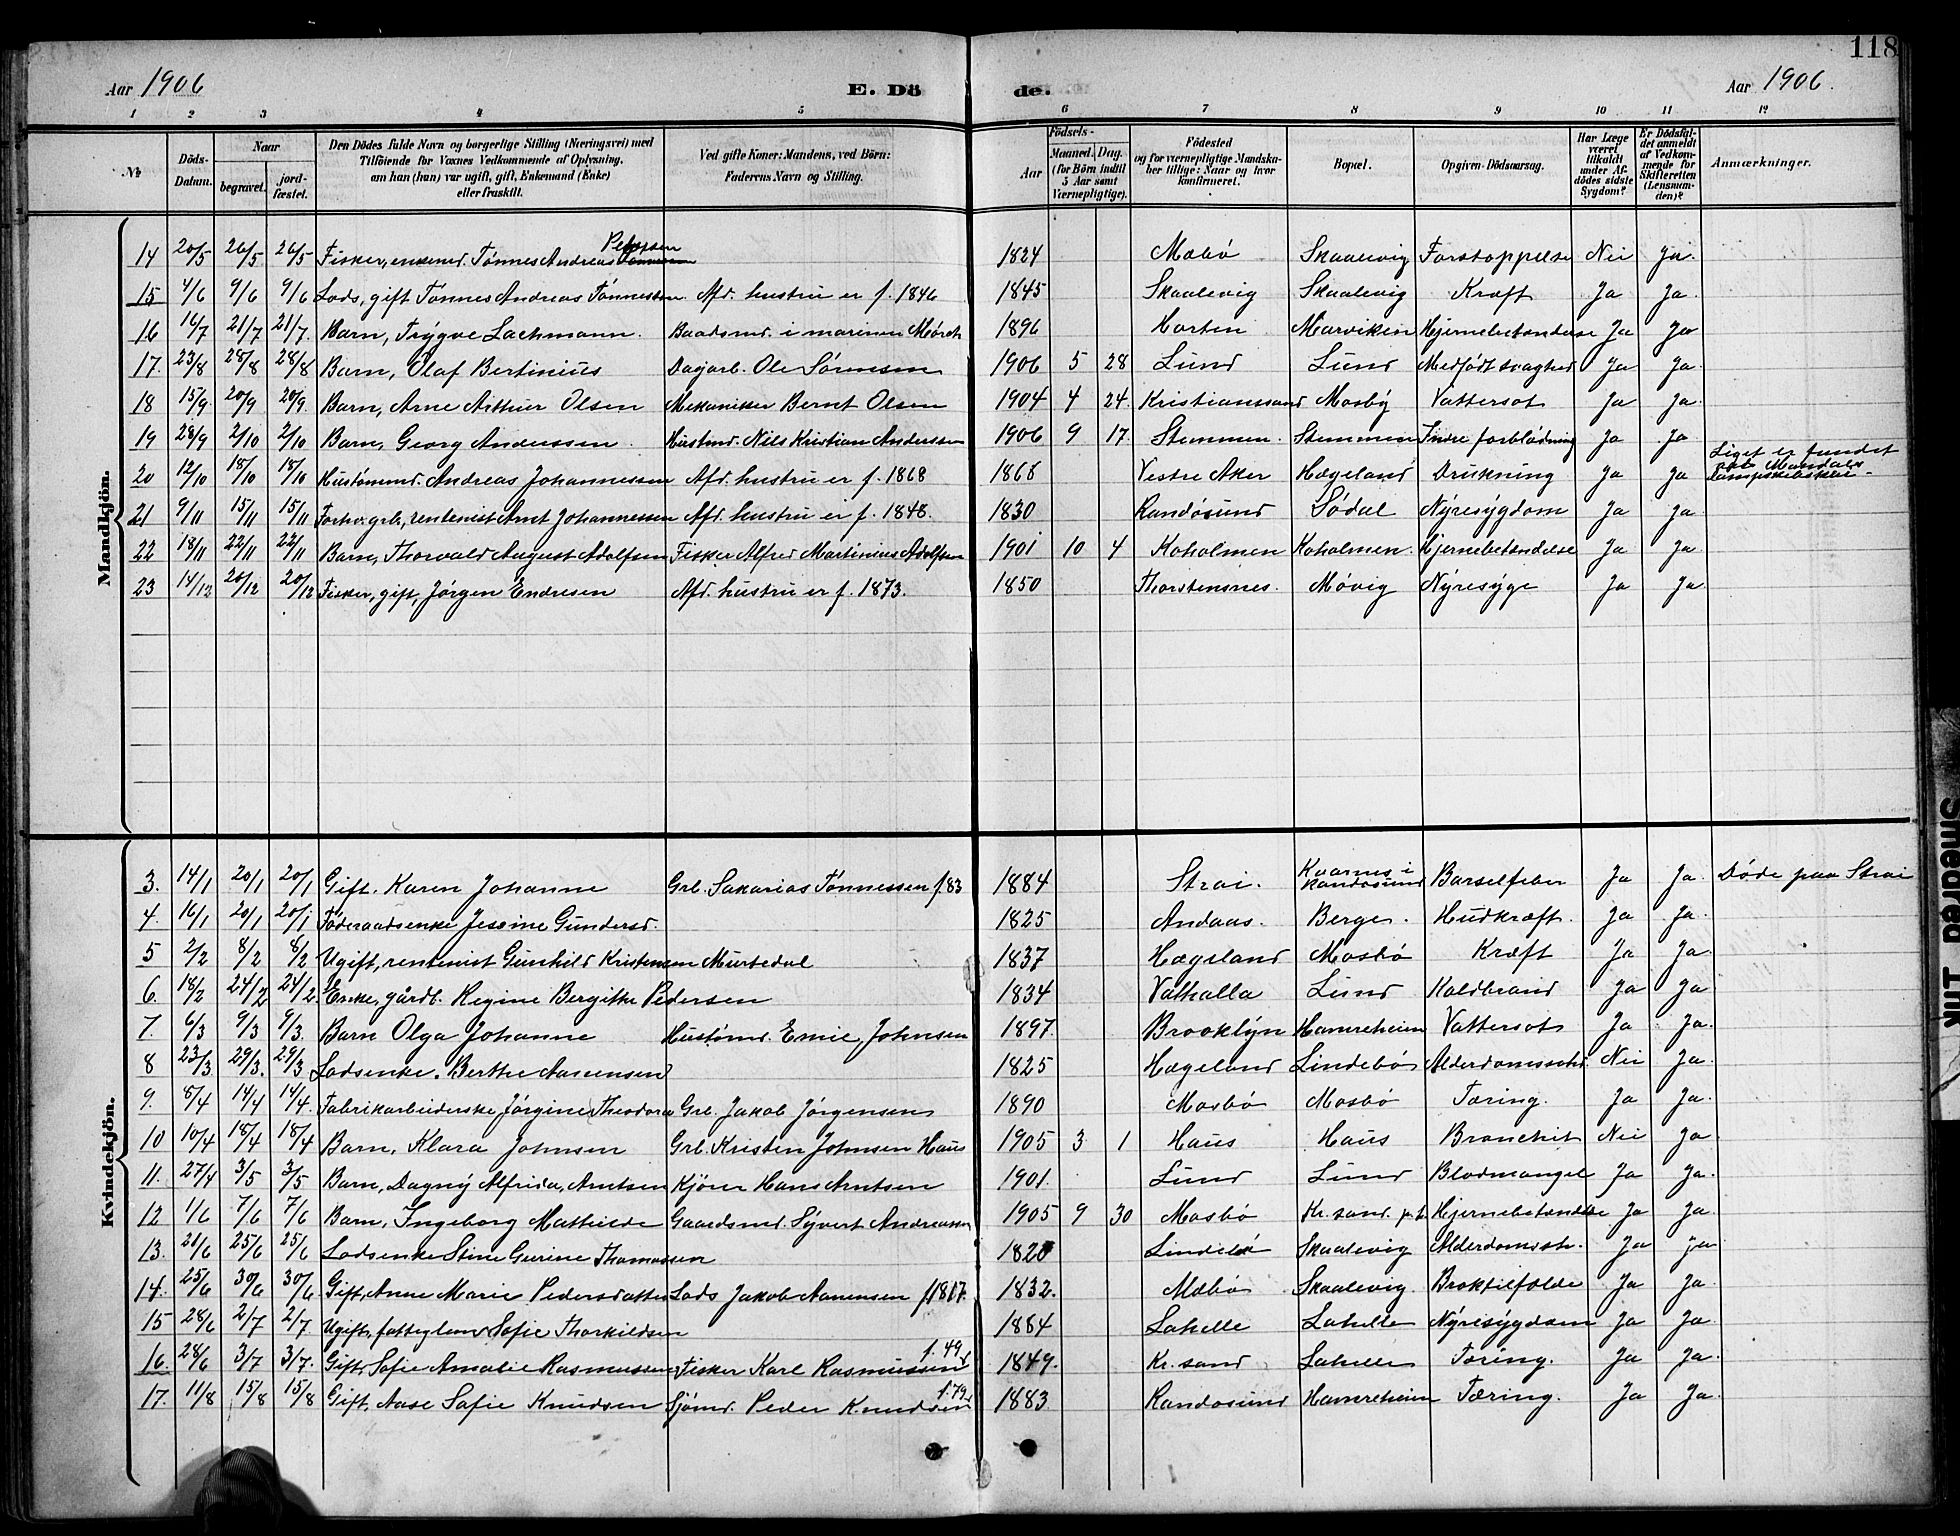 118
Aar 1906 E. Dö de. Aar 1906.
1 2 3 4 5 6 7 8 9 10 11 12
№ Döds-Datum. Naar begravet. jordfæstet. Den Dödes fulde Navn og borgerlige Stilling (Næringsvei) med Tilföiende for Voxnes Vedkommende af Oplysning, om han (hun) var ugift, gift, Enkemand (Enke) eller fraskilt. Ved gifte Koner: Mandens, ved Börn: Faderens Navn og Stilling. Födsels- Aar Maaned. Dag. (for Börn indtil 5 Aar samt Værnepligtige). Födested og for værnepligtige Mandskaber tillige: Naar og hvor konfirmeret. Bopæl. Opgiven Dödsaarsag. Har Læge været tilkaldt under Afdödes sidste Sygdom? Er Dödsfaldet anmeldt af Vedkommende for Skifteretten (Lensmanden)? Anmærkninger.
Mandkjön.
14 20/5 26/5 26/5 Fisker, enkemd. Tønnes Andreas Pettersen 1824 Mæbø Skaalevig Forstoppelse Nei Ja.
15 4/6 9/6 9/6 Lods, gift Tønnes Andreas Tønnessen. Afd. hustru er f. 1846 1845 Skaalevig Skaalevig Kræft Ja Ja.
16 16/7 21/7 21/7. Barn, Trygve Lachmann. Baadsmd. i marinen Mørch 1896 Horten Marviken Hjernebetændelse Ja Ja
17. 23/8 28/8 28/8 Barn, Olaf Bertinius Dagarb. Ole Sørensen 1906 5 28 Lund Lund Medfødt svaghed Ja Ja.
18 15/9. 20/9 20/9. Barn, Arne Arthur Olsen Mekaniker Bernt Olsen 1904 4 24. Kristianssand Mosby Vattersot Ja Ja.
19 28/9 2/10 2/10 Barn, Georg Anderssen. Husmd. Nils Kristian Anderssen 1906 9 17. Stemmen. Stemmen Indre forblødning Ja Ja
20 12/10 18/10 18/10 Hustømmd. Andreas Johannessen Afd. hustru er f. 1868 1868 Vestre Aker Hægeland Drukning Ja Ja Liget er fundet
21 9/11 15/11 15/11 Forhv. grb, rentenist Arnt Johannessen Afd. hustru er f. 1848. 1830 Randøsund Sødal Nyresygdom Ja Ja.
22 18/11 22/11 22/11 Barn, Thorvald August Adolfsen Fisker Alfred Martinius Adolfsen 1901 10 4 Koholmen Koholmen. Hjernebetændelse Ja Ja.
23 14/12 20/12 20/12 Fisker, gift, Jørgen Endresen Afd. hustru er f. 1873. 1850 Thorstensnes. Møvig Nyresyge Ja Ja.
Kvindekjön.
3. 14/1 20/1 20/1 Gift. Karen Johanne Grb. Sakarias Tønnessen f. 83 1884 Strai. Kvarnes i Randøsund Barselfeber Ja Ja. Døde paa Strai
4. 16/1 20/1 20/1 Føderaadsenke Jessine Gundersd. 1825 Andaas. Berge. Hudkræft. Ja Ja.
5 2/2 8/2 8/2 Ugift, rentenist Gunhild Kristensen Murtedal 1837 Hægeland Mosbø Kræft Ja Ja.
6. 18/2 24/2 24/2. Enke, gårdb. Regine Bergitte Pedersen 1834 Valhalla Lund Koldbrand Ja Ja
7. 6/3 9/3 9/3. Barn Olga Johanne Hustømd. Emil Johnsen 1897. Brooklyn Hamreheim Vattersot Ja Ja.
8 23/3 29/3. 29/3 Lodsenke. Berthe Aanensen 1825 Hægeland Lindebø Nei Ja.
9. 8/4 14/4 14/4. Fabrikarbeiderske Jørgine Theodora Grb. Jakob Jørgensen 1890 Mosbø Mosbø Tæring. Ja Ja.
10 10/4 18/4 18/4 Barn, Klara Johnsen Grb. Kristen Johnsen Haus 1905 3 1 Haus Haus Bronchit Nei Ja
11. 27/4 3/5 3/5 Barn, Dagny Alfrida, Arntsen Kjører Hans Arntsen 1901. Lund Lund Blodmangel Ja Ja.
12 1/6 7/6 7/6 Barn, Ingeborg Mathilde Gaardsmd. Syvert Andreassen 1905 9 30 Mosbø Kr. sand Hjernebetændelse Ja Ja.
13. 21/6 25/6 25/6 Lodsenke Stine Gurine Thomassen 1820 Lindebø Skaalevig Alderdomssv. Ja Ja
14. 25/6 30/6 30/6 Gift, Anne Marie Pedersdatter Lods Jakob Aanensen f 1817. 1832. Mæbø Skaalevig. Broktilfælde Ja Ja.
15 28/6 2/7 2/7. Ugift, fattiglem Sofie Thorkildsen 1884 Lahelle Lahelle Nyresygdom Ja Ja.
16. 28/6 3/7 3/7. Gift, Sofie Amalie Rasmussen Fisker Karl Rasmussen f. 49 1849. Kr. sand Lahelle Tæring. Ja Ja.
17. 11/8 15/8 15/8 Gift, Aase Sofie Knudsen Sjømd. Peder Knudsen f. 79 1883. Randøsund Hamreheim Tæring. Ja Ja.